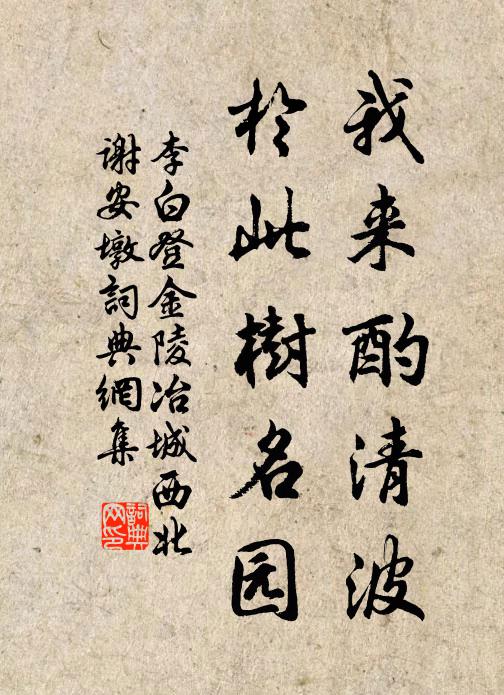 我来酌清波
於此樹名园
李白登金陵冶城西北
谢安墩詞典網集
詞典网印